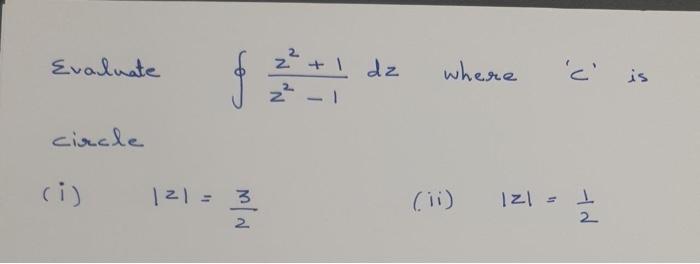 Evaluate ∮ (z² + 1)/(z² - 1) dz where 'c' is
circle
(i) |z| = 3/2 (ii) |z| = 1/2